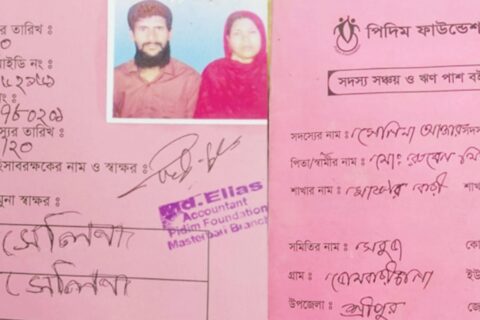 র তারিখ :
০
আইডি নং :
নং :
স্যর তারিখ :
/২০
হিসাবরক্ষকের নাম ও স্বাক্ষর :
মুনা স্বাক্ষর :
সেলিনা
সেলিনা
Md. Elias
Accountant
Pidim Foundation
Masterbari Branch
পিদিম ফাউন্ডেশ
সদস্য সঞ্চয় ও ঋণ পাশ ব
সদস্যের নাম : সেলিনা আক্তার সদস
পিতা/স্বামীর নাম : মোঃ রুবেল মি
শাখার নাম : মাষ্টার বাড়ী শাখ
সমিতির নাম : কো
গ্রাম : ইউ
উপজেলা : শ্রীপুর জে